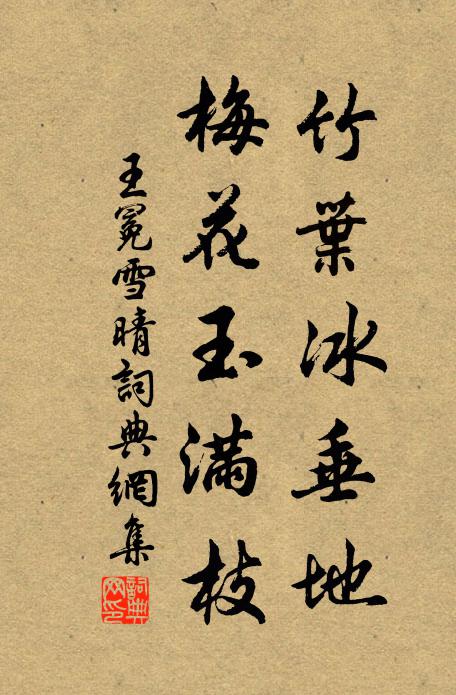 竹葉冰垂地
梅花玉滿枝
王冕雪晴詞典網集
詞典
网印